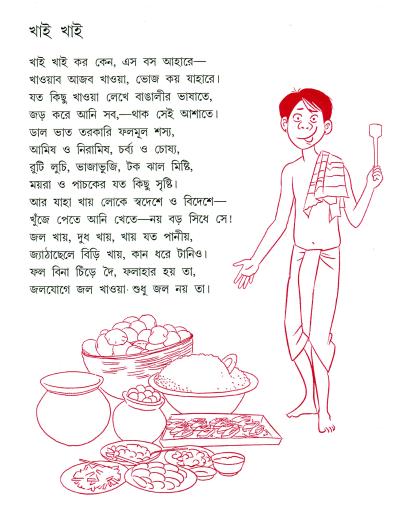 খাই খাই
খাই খাই কর কেন, এস বস আহারে—
খাওয়াব আজব খাওয়া, ভোজ কয় যাহারে।
যত কিছু খাওয়া লেখে বাঙালীর ভাষাতে,
জড় করে আনি সব,—থাক সেই আশাতে।
ডাল ভাত তরকারি ফলমূল শস্য,
আমিষ ও নিরামিষ, চর্ব্য ও চোষ্য,
রুটি লুচি, ভাজাভুজি, টক ঝাল মিষ্টি,
ময়রা ও পাচকের যত কিছু সৃষ্টি।
আর যাহা খায় লোকে স্বদেশে ও বিদেশে—
খুঁজে পেতে আনি খেতে—নয় বড় সিধে সে!
জল খায়, দুধ খায়, খায় যত পানীয়,
জ্যাঠাছেলে বিড়ি খায়, কান ধরে টানিও।
ফল বিনা চিঁড়ে দৈ, ফলাহার হয় তা,
জলযোগে জল খাওয়া শুধু জল নয় তা।